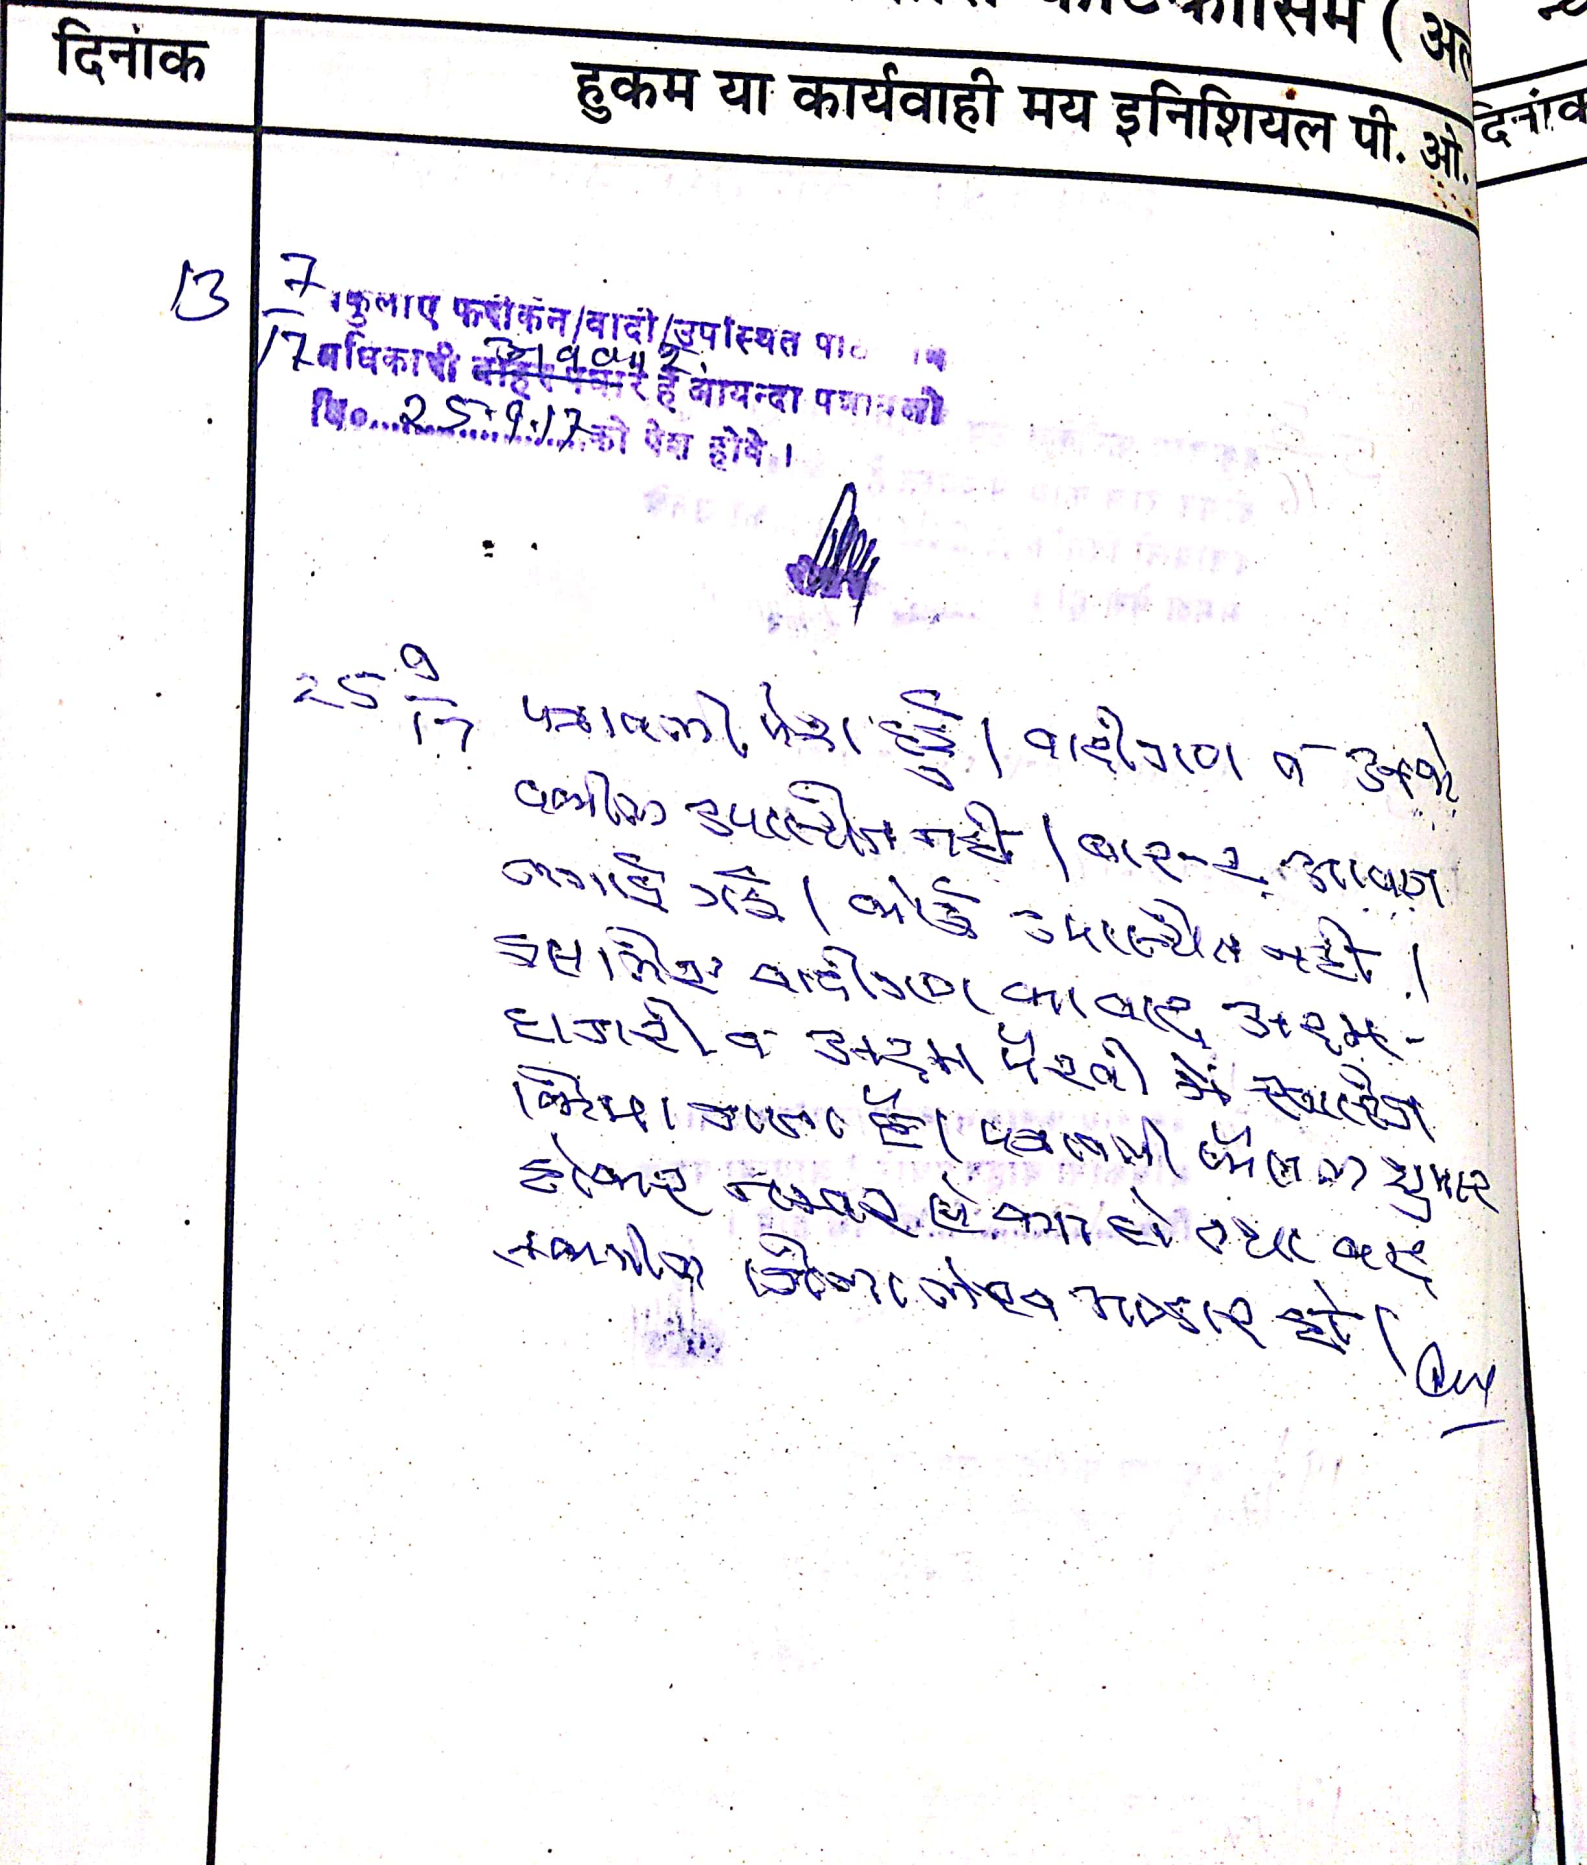 कोटकासिम ( अल
दिनांक
हुकम या कार्यवाही मय इनिशियल पी. ओ.
दिनांक
13 7/17
वकुलाए फरीकन/वादी/उपस्थित पी०
अवकाश
अधिकारी बाहर पधारे हैं आयन्दा पत्रावली
दि०...25.9.17...को पेश होवे।
25 9/17
पत्रावली पेश हुई। वादीगण व उनके
वकील उपस्थित नही। बार-2 आवाज
लगाई गई। कोई उपस्थित नही।
इसलिए वादीगण का वाद अदम-
हाजरी व अदम पैरवी में खारिज
किया जाता है। पत्रावली फैसल शुमार
होकर नम्बर से कम हो तथा बाद
तकमील लेख भण्डार हो।